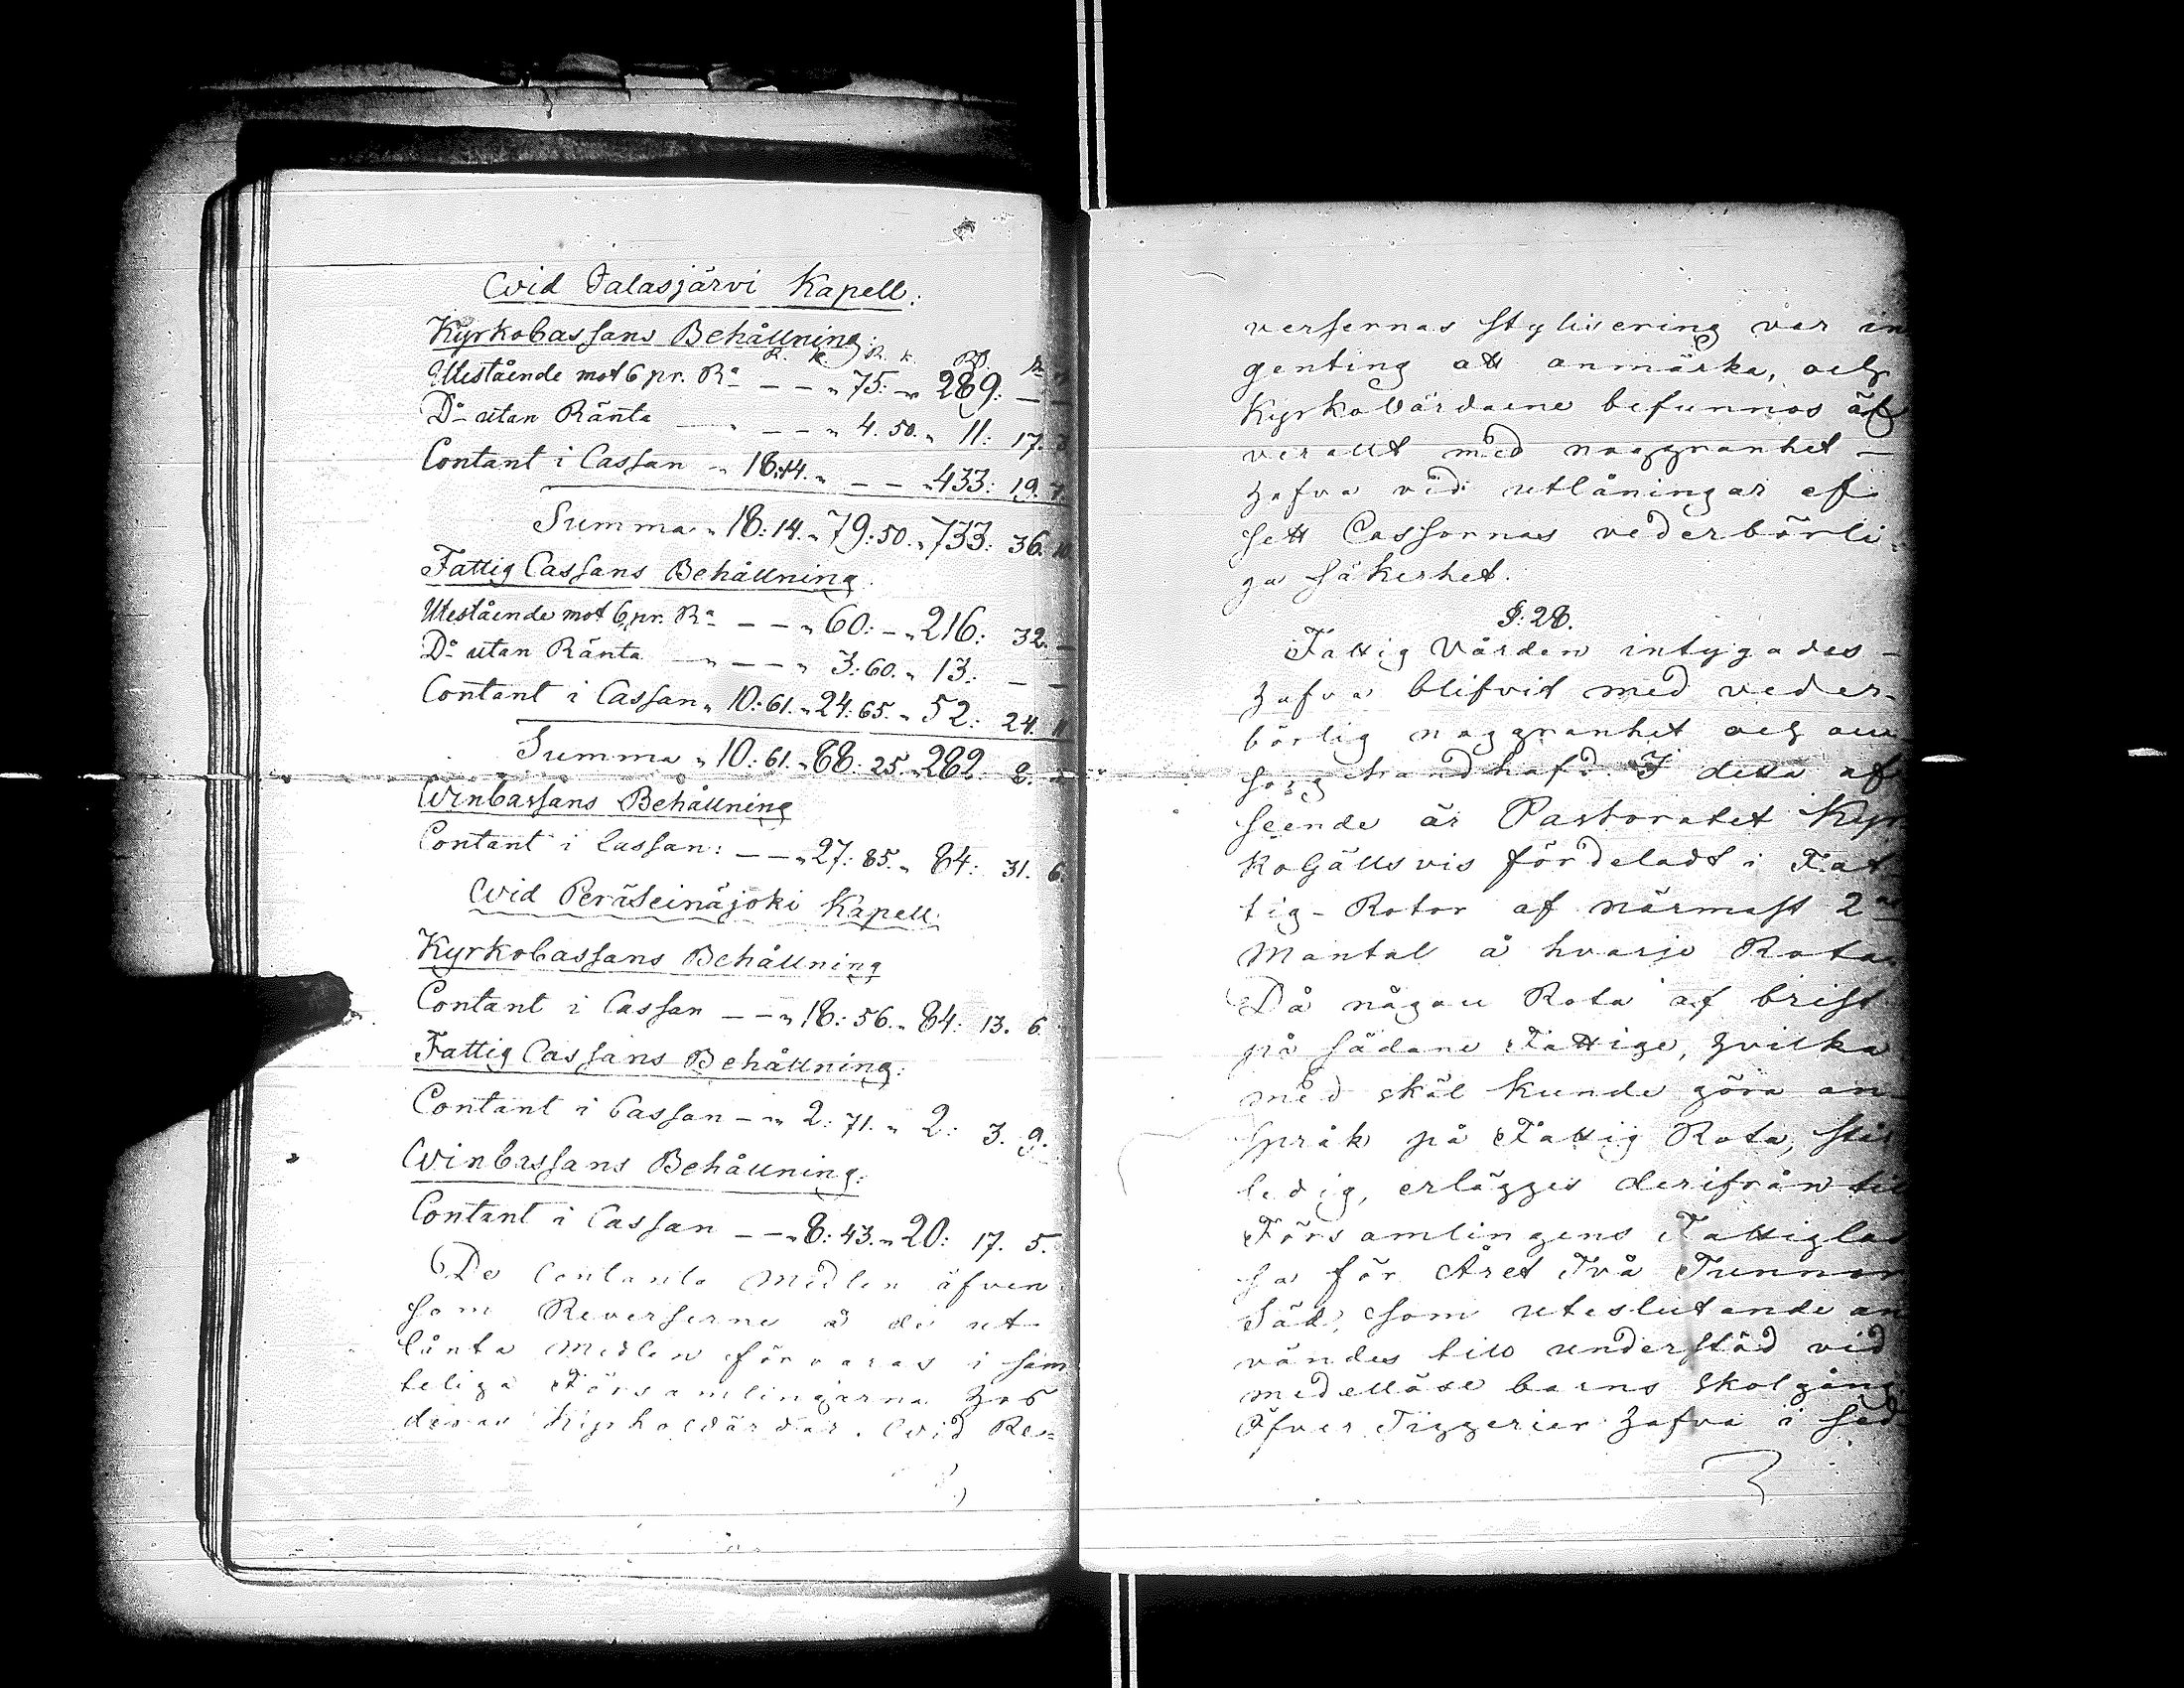 Wid Jalasjärvi Kapell.
KyrkoCassans Behållning:
R. K. R. K. Rd.
Utestående mot 6 pr. Ra — — „ 75: — „ 289: — —
Do utan Ränta — „ — — „ 4. 50. „ 11: 17.
Contant i Cassan „ 18:14. „ — — „ 433: 19. 7.
Summa „ 18:14. „ 79:50. „ 733: 36. 10
Fattig Cassans Behållning.
Utestående mot 6 pr. Ra — — „ 60: — „ 216: 32. —
Do utan Ränta — „ — — „ 3:60. „ 13: — —
Contant i Cassan „ 10:61. „ 24:65. „ 52: 24. 11
Summa „ 10:61. „ 88:25. „ 282: 8.
WinCassans Behållning
Contant i Cassan: — — „ 27:85. „ 84: 31. 6.
Wid Peräseinäjoki Kapell.
KyrkoCassans Behållning
Contant i Cassan — — „ 18:56. „ 84: 13. 6.
Fattig Cassans Behållning:
Contant i Cassan — „ 2:71. „ 2: 3. 9.
WinCassans Behållning:
Contant i Cassan — — „ 8:43. „ 20: 17. 5.
De Contanta Medlen äfven
som Reverserne å de ut
lånta Medlen förvaras i sam
teliga Församlingarna hos
deras Kyrkovärdar. Wid Re=
versernas stylisering var in
genting att anmärka, och
Kyrkovärdarne befunnos öf
verallt med noggranhet —
hafva vid utlåningar af
sett Cassornas vederbörli=
ga säkerhet.
§. 28.
Fattig Vården intygades —
hafva blifvit med veder-
börlig noggranhet och om
sorg handhafd. I detta af
seende är Pastoratet Kyr
kogällsvis fördeladt i Fat-
tig-Rotor af närmast 2ne
Mantal å hvarje Rota.
Då någon Rota af brist
på sådane Fattige, hvilka
med skäl kunde göra an-
språk på Fattig Rota, står
ledig, erlägges derifrån till
Församlingens Fattiglas
sa för Året Två Tunnor
Säd, som uteslutande an
vändes till understöd vid
medellöse barns skolgång
Öfver Tiggerier hafva i sed